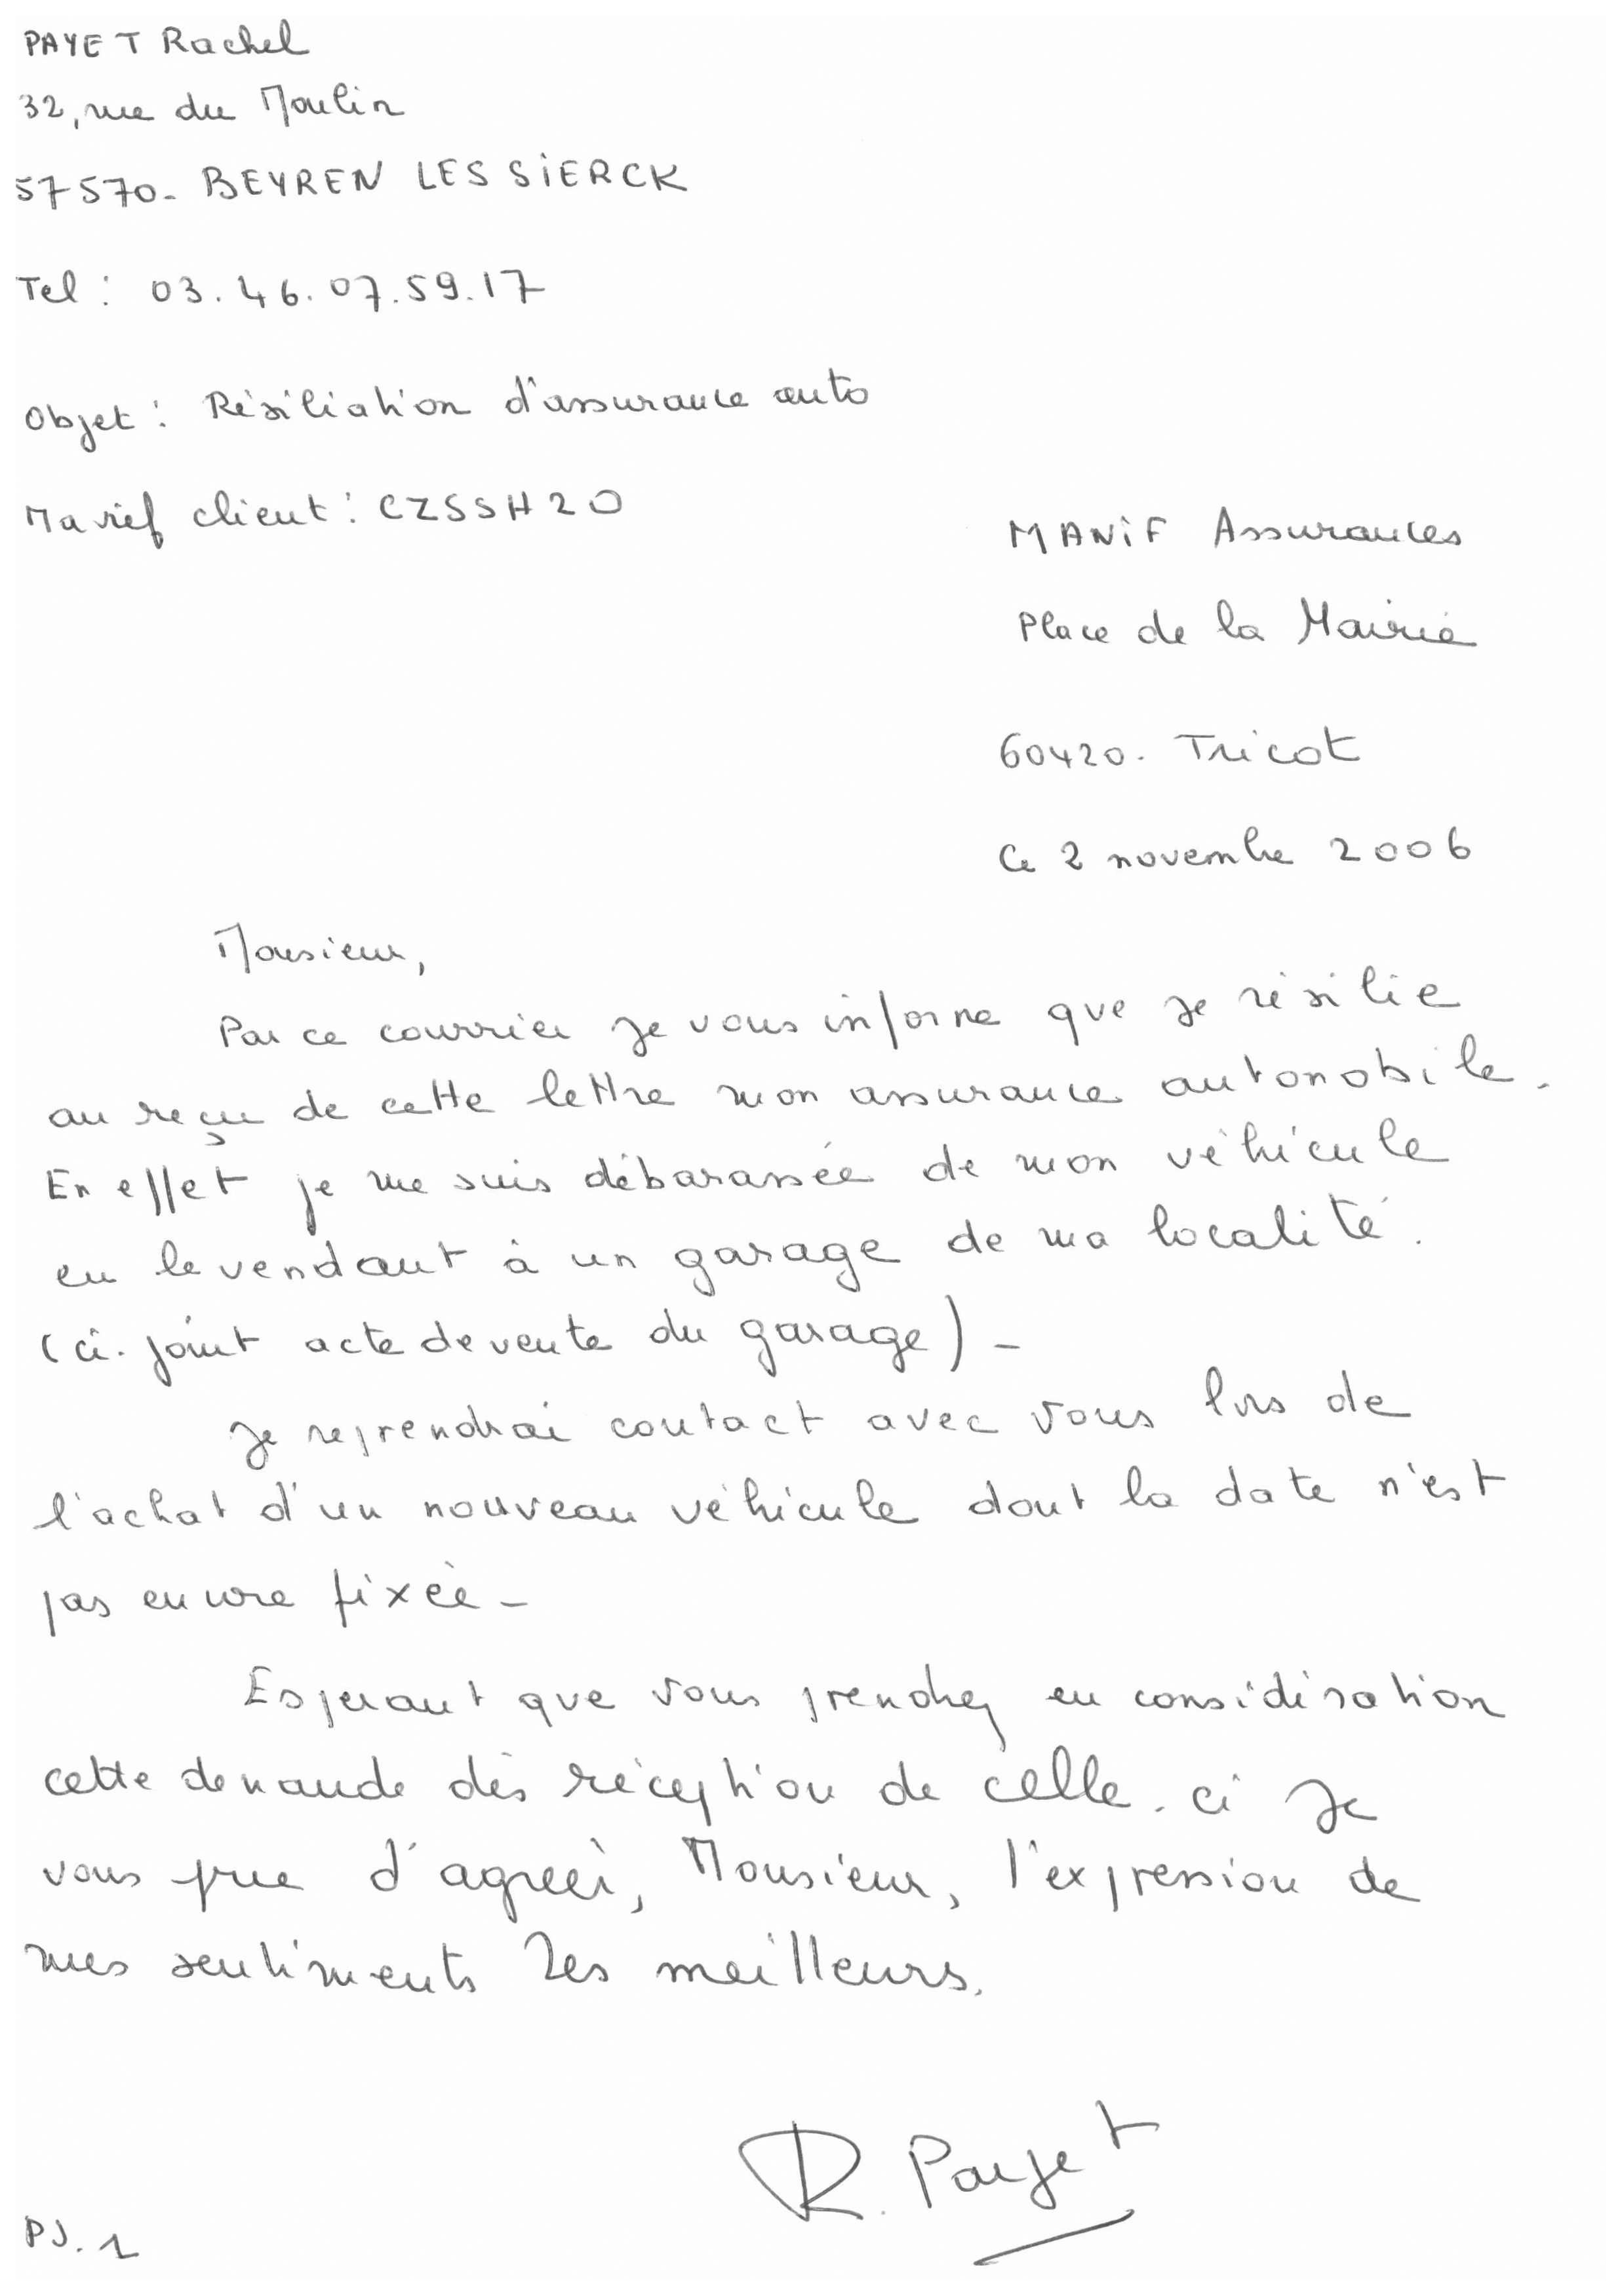 PAYET Rachel
32, rue du Moulin
57570. BEYREN LES SIERCK
Tel : 03.46.07.59.17
Objet : Résiliation d'assurance auto
Ma réf client : CZSSH20
MANIF Assurances
Place de la Mairie
60420. Tricot
Ce 2 novembre 2006
Monsieur,
Par ce courrier je vous informe que je résilie
au reçu de cette lettre mon assurance automobile.
En effet je me suis débarassée de mon véhicule
en le vendant à un garage de ma localité.
(ci-joint acte de vente du garage) -
Je reprendrai contact avec vous lors de
l'achat d'un nouveau véhicule dont la date n'est
pas encore fixée -
Esperant que vous prendrez en considération
cette demande dès réception de celle-ci Je
vous prie d'agréer, Monsieur, l'expression de
mes sentiments les meilleurs.
R. Payet
PJ. 1